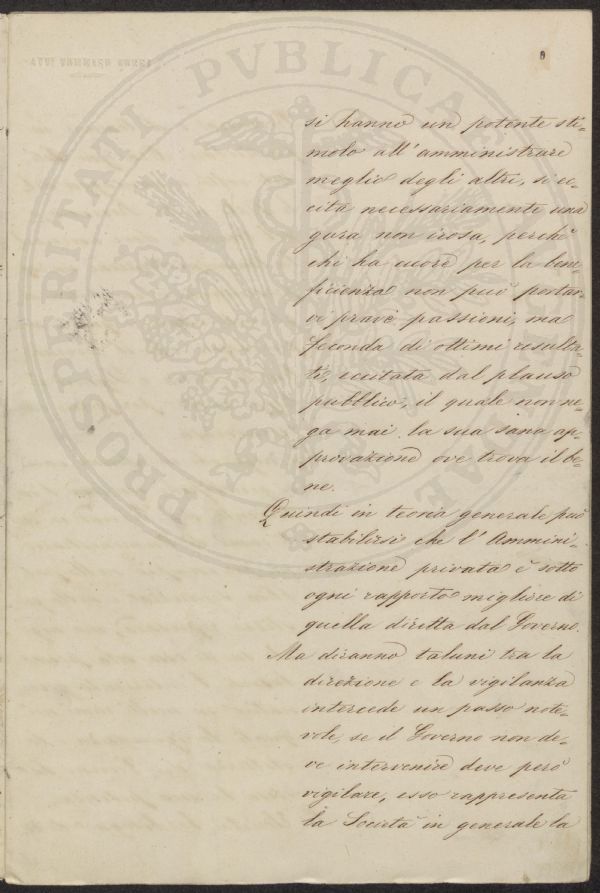 PROSPERITATI PVBLICAE
si hanno un potente sti=
molo all'amministrare
meglio degli altri, si ec=
cita necessariamente una
gara non irosa, perchè
chi ha cuore per la bene=
ficienza non può portar=
vi prave passioni, ma
feconda di ottimi resulta=
ti, eccitata dal plauso
pubblico, il quale non ne=
ga mai la sua sana ap=
provazione ove trova il be=
ne.
Quindi in teoria generale può
stabilirsi che l'Ammini=
strazione privata è sotto
ogni rapporto migliore di
quella diretta dal Governo.
Ma diranno taluni tra la
direzione e la vigilanza
intercede un passo note=
vole, se il Governo non de=
ve intervenire deve però
vigilare, esso rappresenta
la Società in generale la